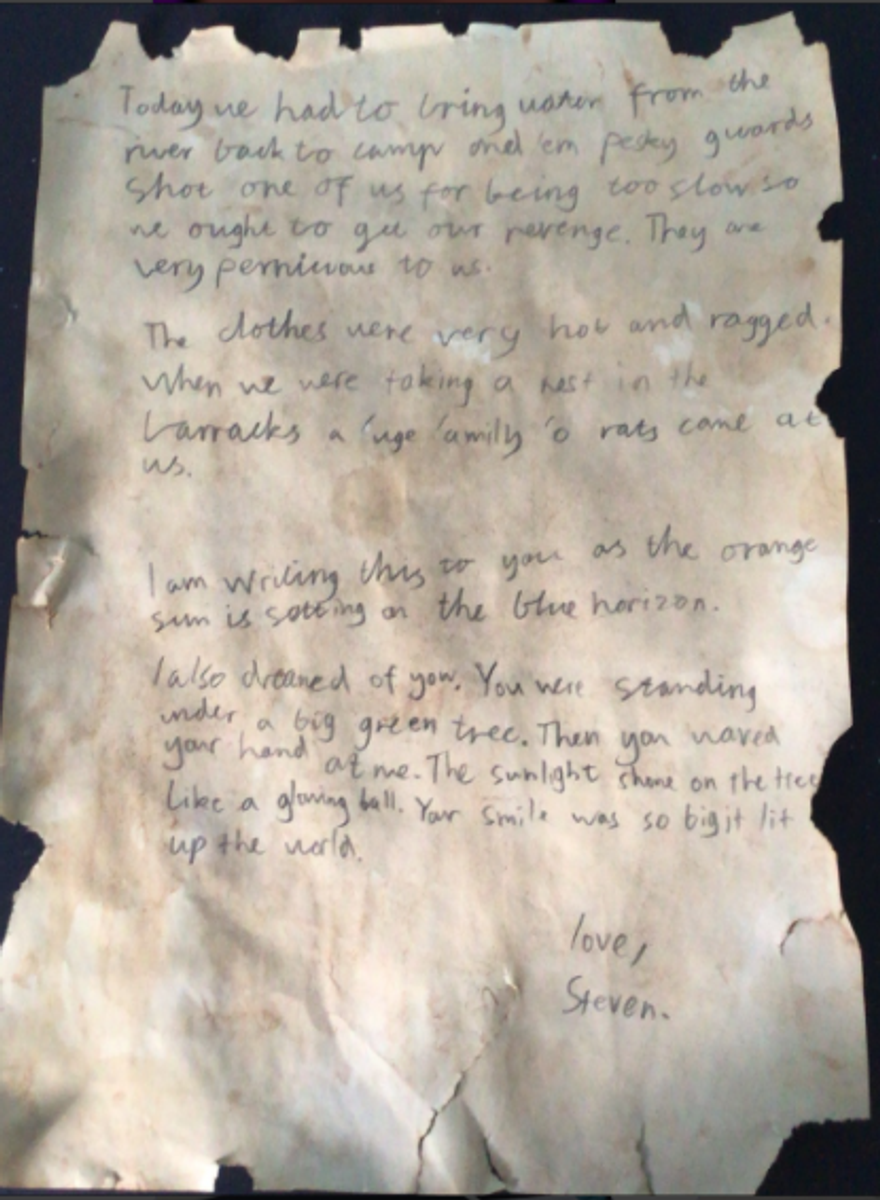 Today we had to bring water from the
river back to camp and 'em pesky guards
shot one of us for being too slow so
we ought to get our revenge. They are
very pernicious to us.
The clothes were very hot and ragged.
When we were taking a rest in the
barracks a 'uge 'amily 'o rats came at
us.
I am writing this to you as the orange
sun is setting on the blue horizon.
I also dreamed of you. You were standing
under a big green tree. Then you waved
your hand at me. The sunlight shone on the tree
like a glowing ball. Your smile was so big it lit
up the world.
love,
Steven.